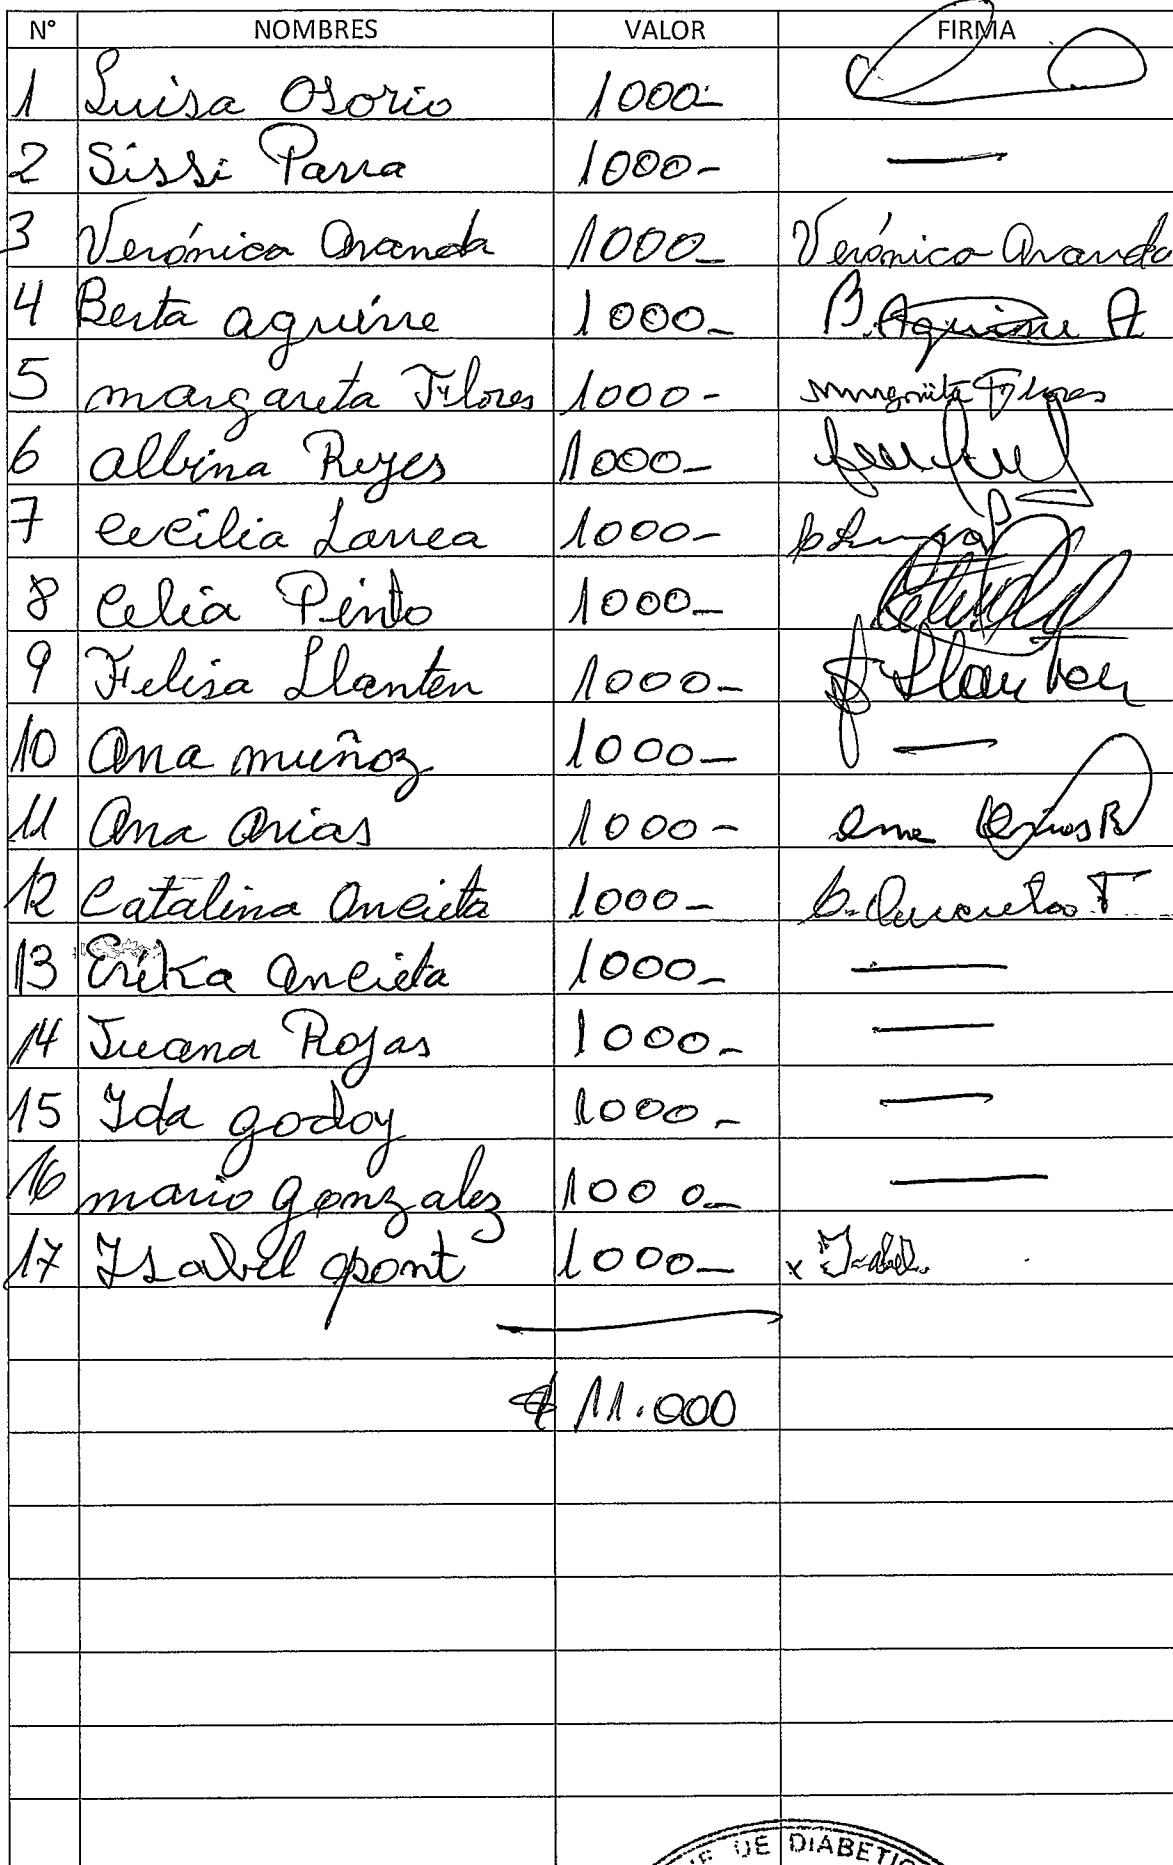 N° NOMBRES VALOR FIRMA
1 Luisa Osorio 1000-
2 Sissi Parra 1000- —
3 Verónica Aranda 1000- Verónica Aranda
4 Berta aguirre 1000- B. Aguirre A
5 margareta Flores 1000- Margarita Flores
6 Albina Reyes 1000-
7 Cecilia Larrea 1000-
8 Celia Pinto 1000-
9 Felisa Llanten 1000- F Llanten
10 Ana muñoz 1000- —
11 Ana Arias 1000- Ana Arias R
12 Catalina Ancieta 1000-
13 Erika Ancieta 1000- —
14 Juana Rojas 1000- —
15 Ida godoy 1000- —
16 mario gonzalez 1000- —
17 Isabel Apont 1000- x Isabel
$ 11.000
DE DIABETIC